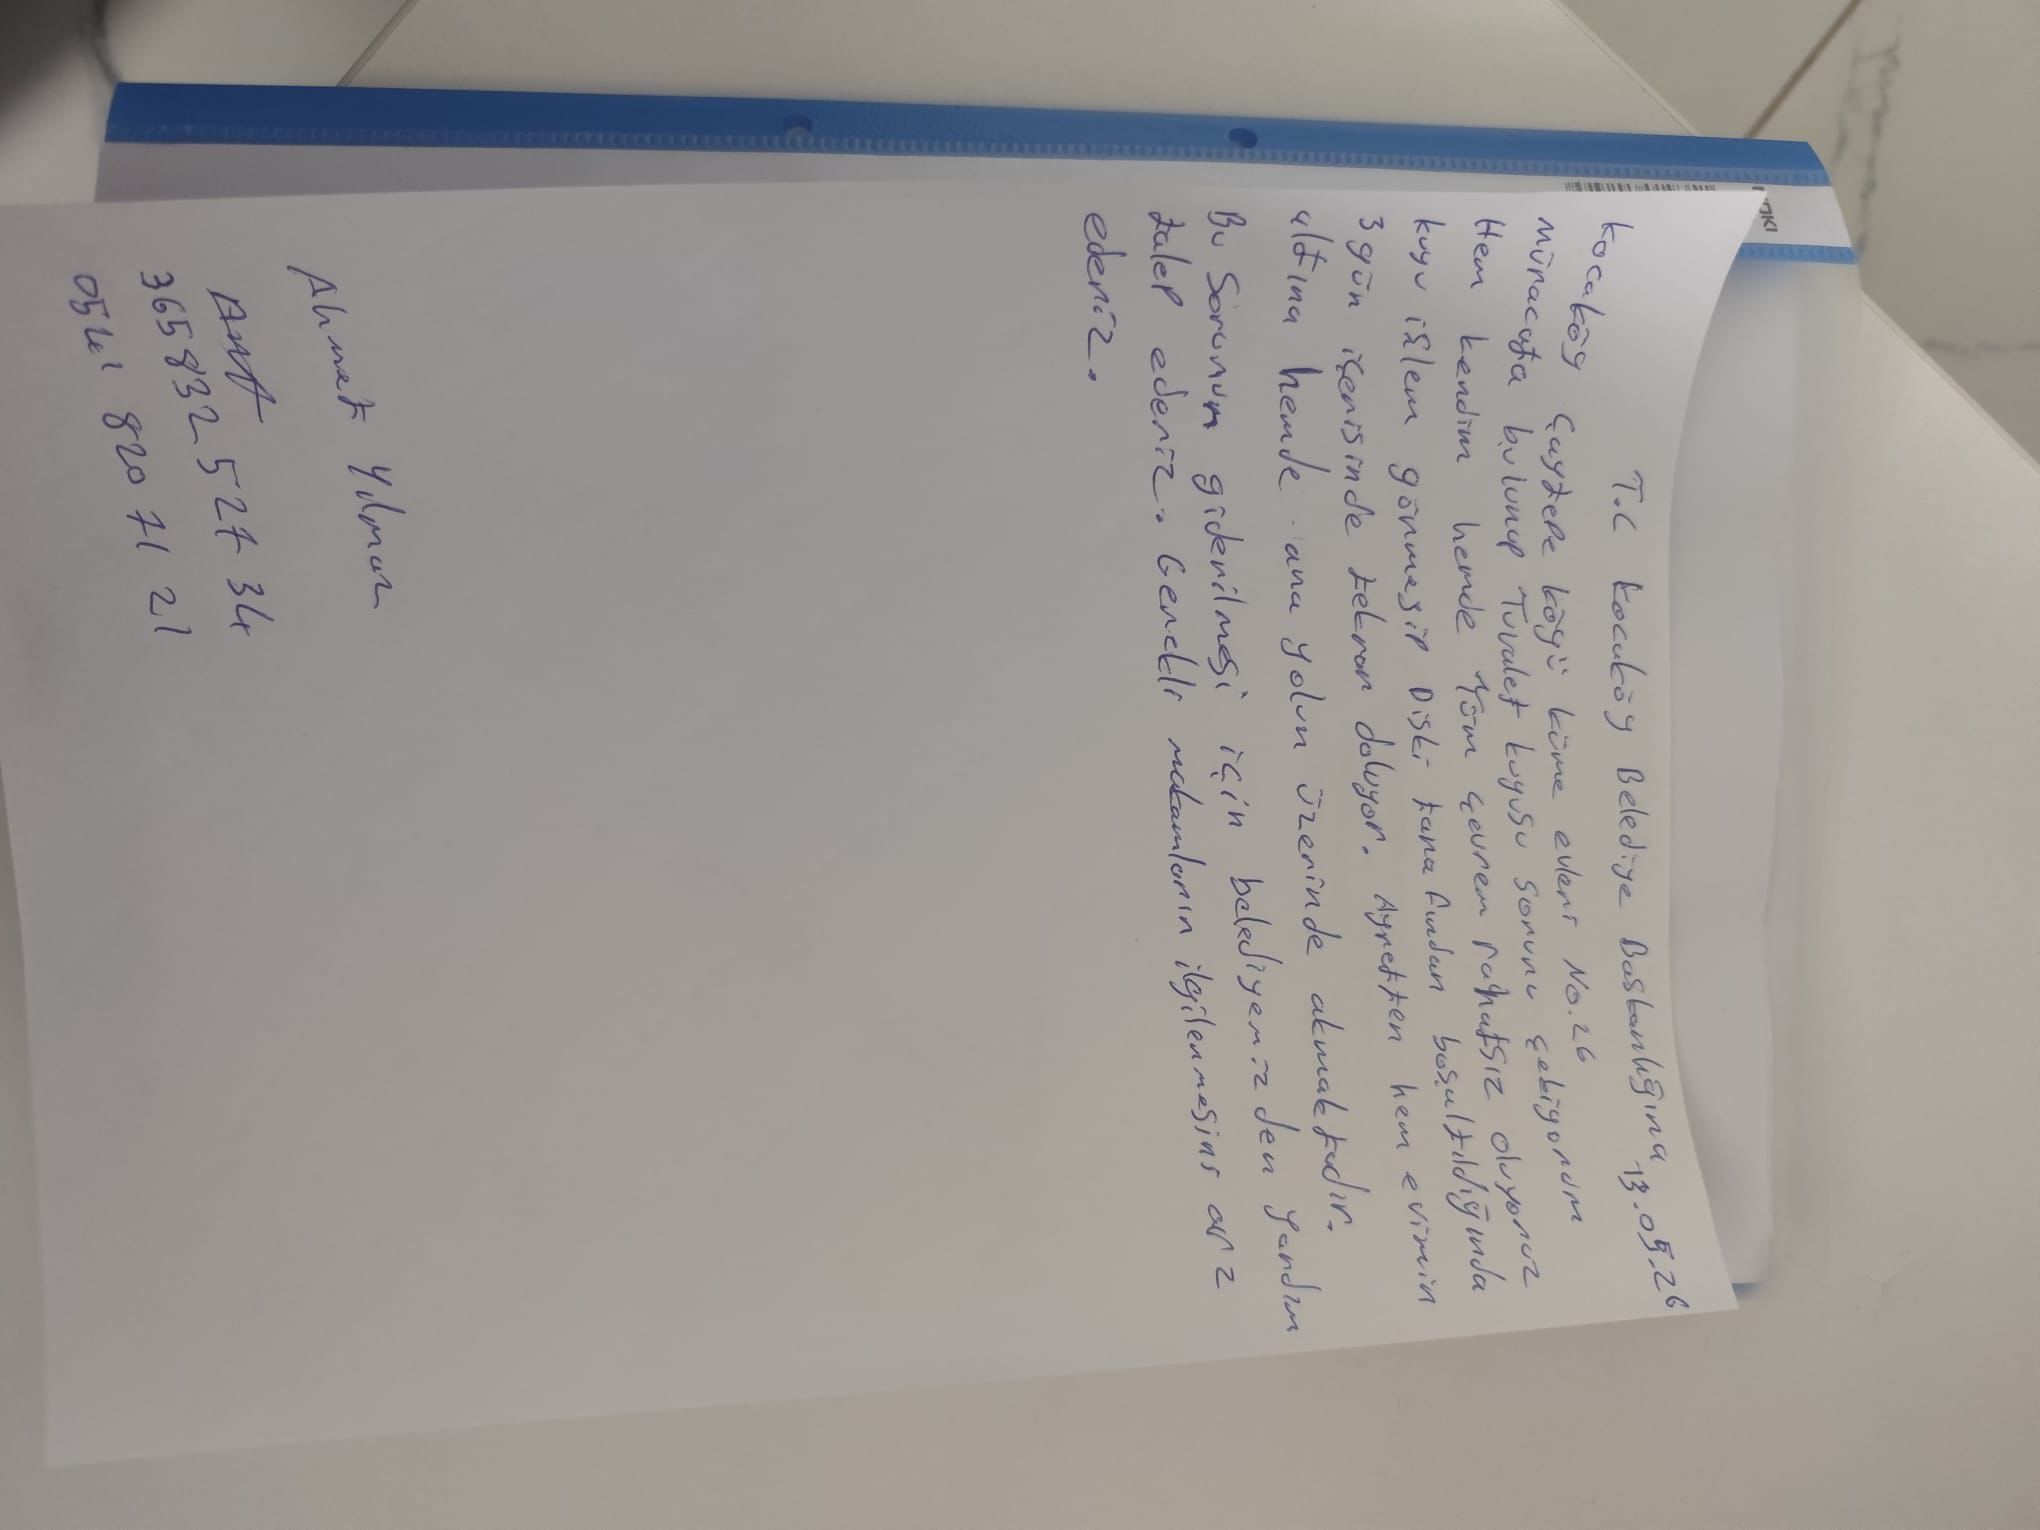 T.C Kocaköy Belediye Başkanlığına 13.05.26
Kocaköy Çaytepe köyü küme evleri No.26
müracata bulunup Tuvalet kuyusu sorunu çekiyorum
Hem kendim hemde tüm çevrem rahatsız oluyoruz
kuyu işlem görmesip Diski tarafından boşaltıldığında
3 gün içerisinde tekrar doluyor. Ayretten hem evimin
altına hemde ana yolun üzerinde akmaktadır.
Bu Sorunum giderilmesi için belediyemizden yardım
talep ederiz. Gerekli makamların ilgilenmesini arz
ederiz.
Ahmet Yılmaz
365 832 527 34
0541 820 71 21